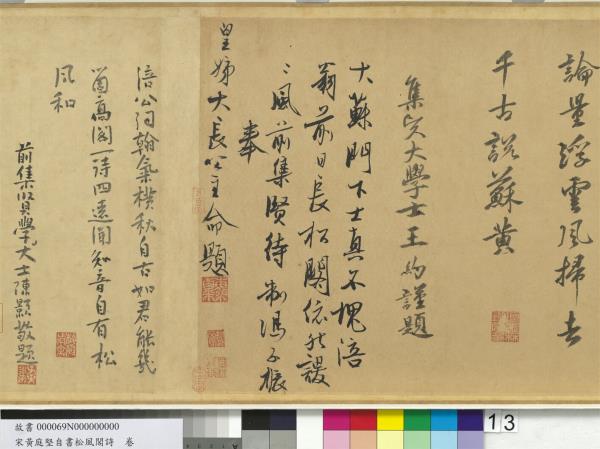 論量浮雲風掃去
千古說蘇黃
集賢大學士王約謹題
大蘇門下士真不愧涪
翁前日長松閣依然謖
〻風前集賢待制馮子振
奉
皇姊大長公主命題
涪公詞翰氣橫秋自古如君能幾
箇高閣一詩四遠聞知音自有松
風和
前集賢學大士陳顥敬題
故書 000069N000000000
宋黃庭堅自書松風閣詩 卷
13